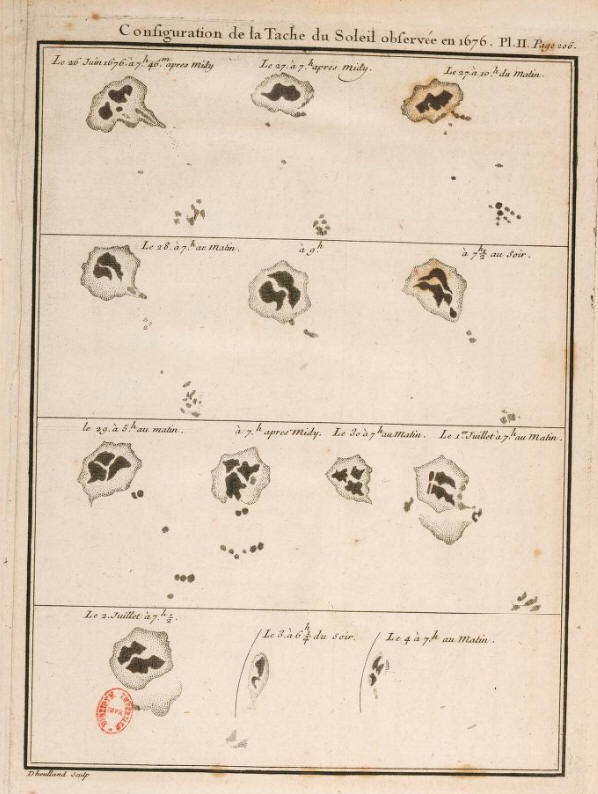 Configuration de la Tache du Soleil observée en 1676. Pl. II. Page 206.
Le 26 Juin 1676. à 7.h 46.m apres Midy
Le 27. à 7.h après Midy.
Le 27. à 10.h du Matin.
Le 28. à 7.h au Matin.
à 9h
à 7h½ au Soir.
le 29. à 5.h au matin.
à 7.h apres Midy.
Le 30 à 7h au Matin.
Le 1er Juillet à 7.h au Matin.
Le 2. Juillet à 7.h½.
Le 3. à 6h¼ du Soir.
Le 4 à 7.h au Matin.
Dheulland Sculp